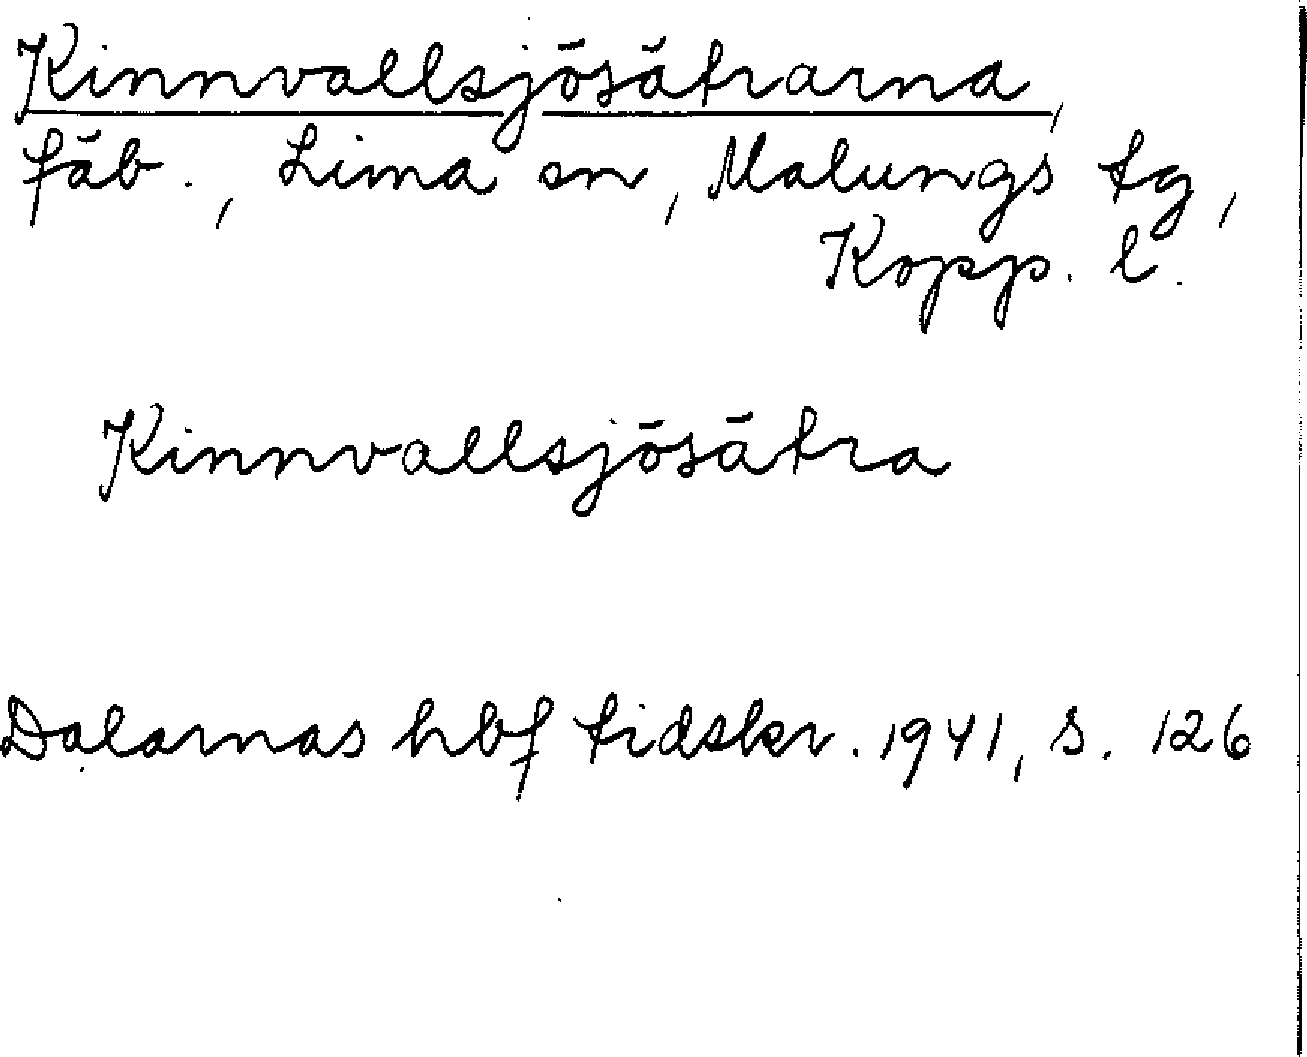 Kinnvallsjösätrarna,
fäb., Lima sn, Malungs tg,
Kopp. l.
Kinnvallsjösätra
Dalarnas hbf tidskr. 1941, s. 126